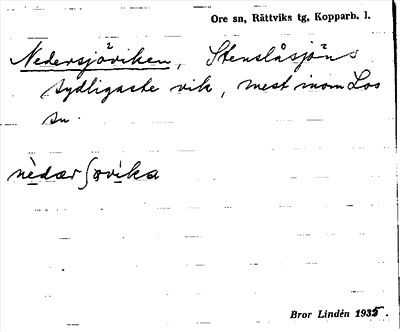 Ore sn, Rättviks tg, Kopparb. l.
Nedersjöviken, Stenslåsjöns
sydligaste vik, mest inom Los
sn.
nèdær ʃøvika
Bror Lindén 1935.